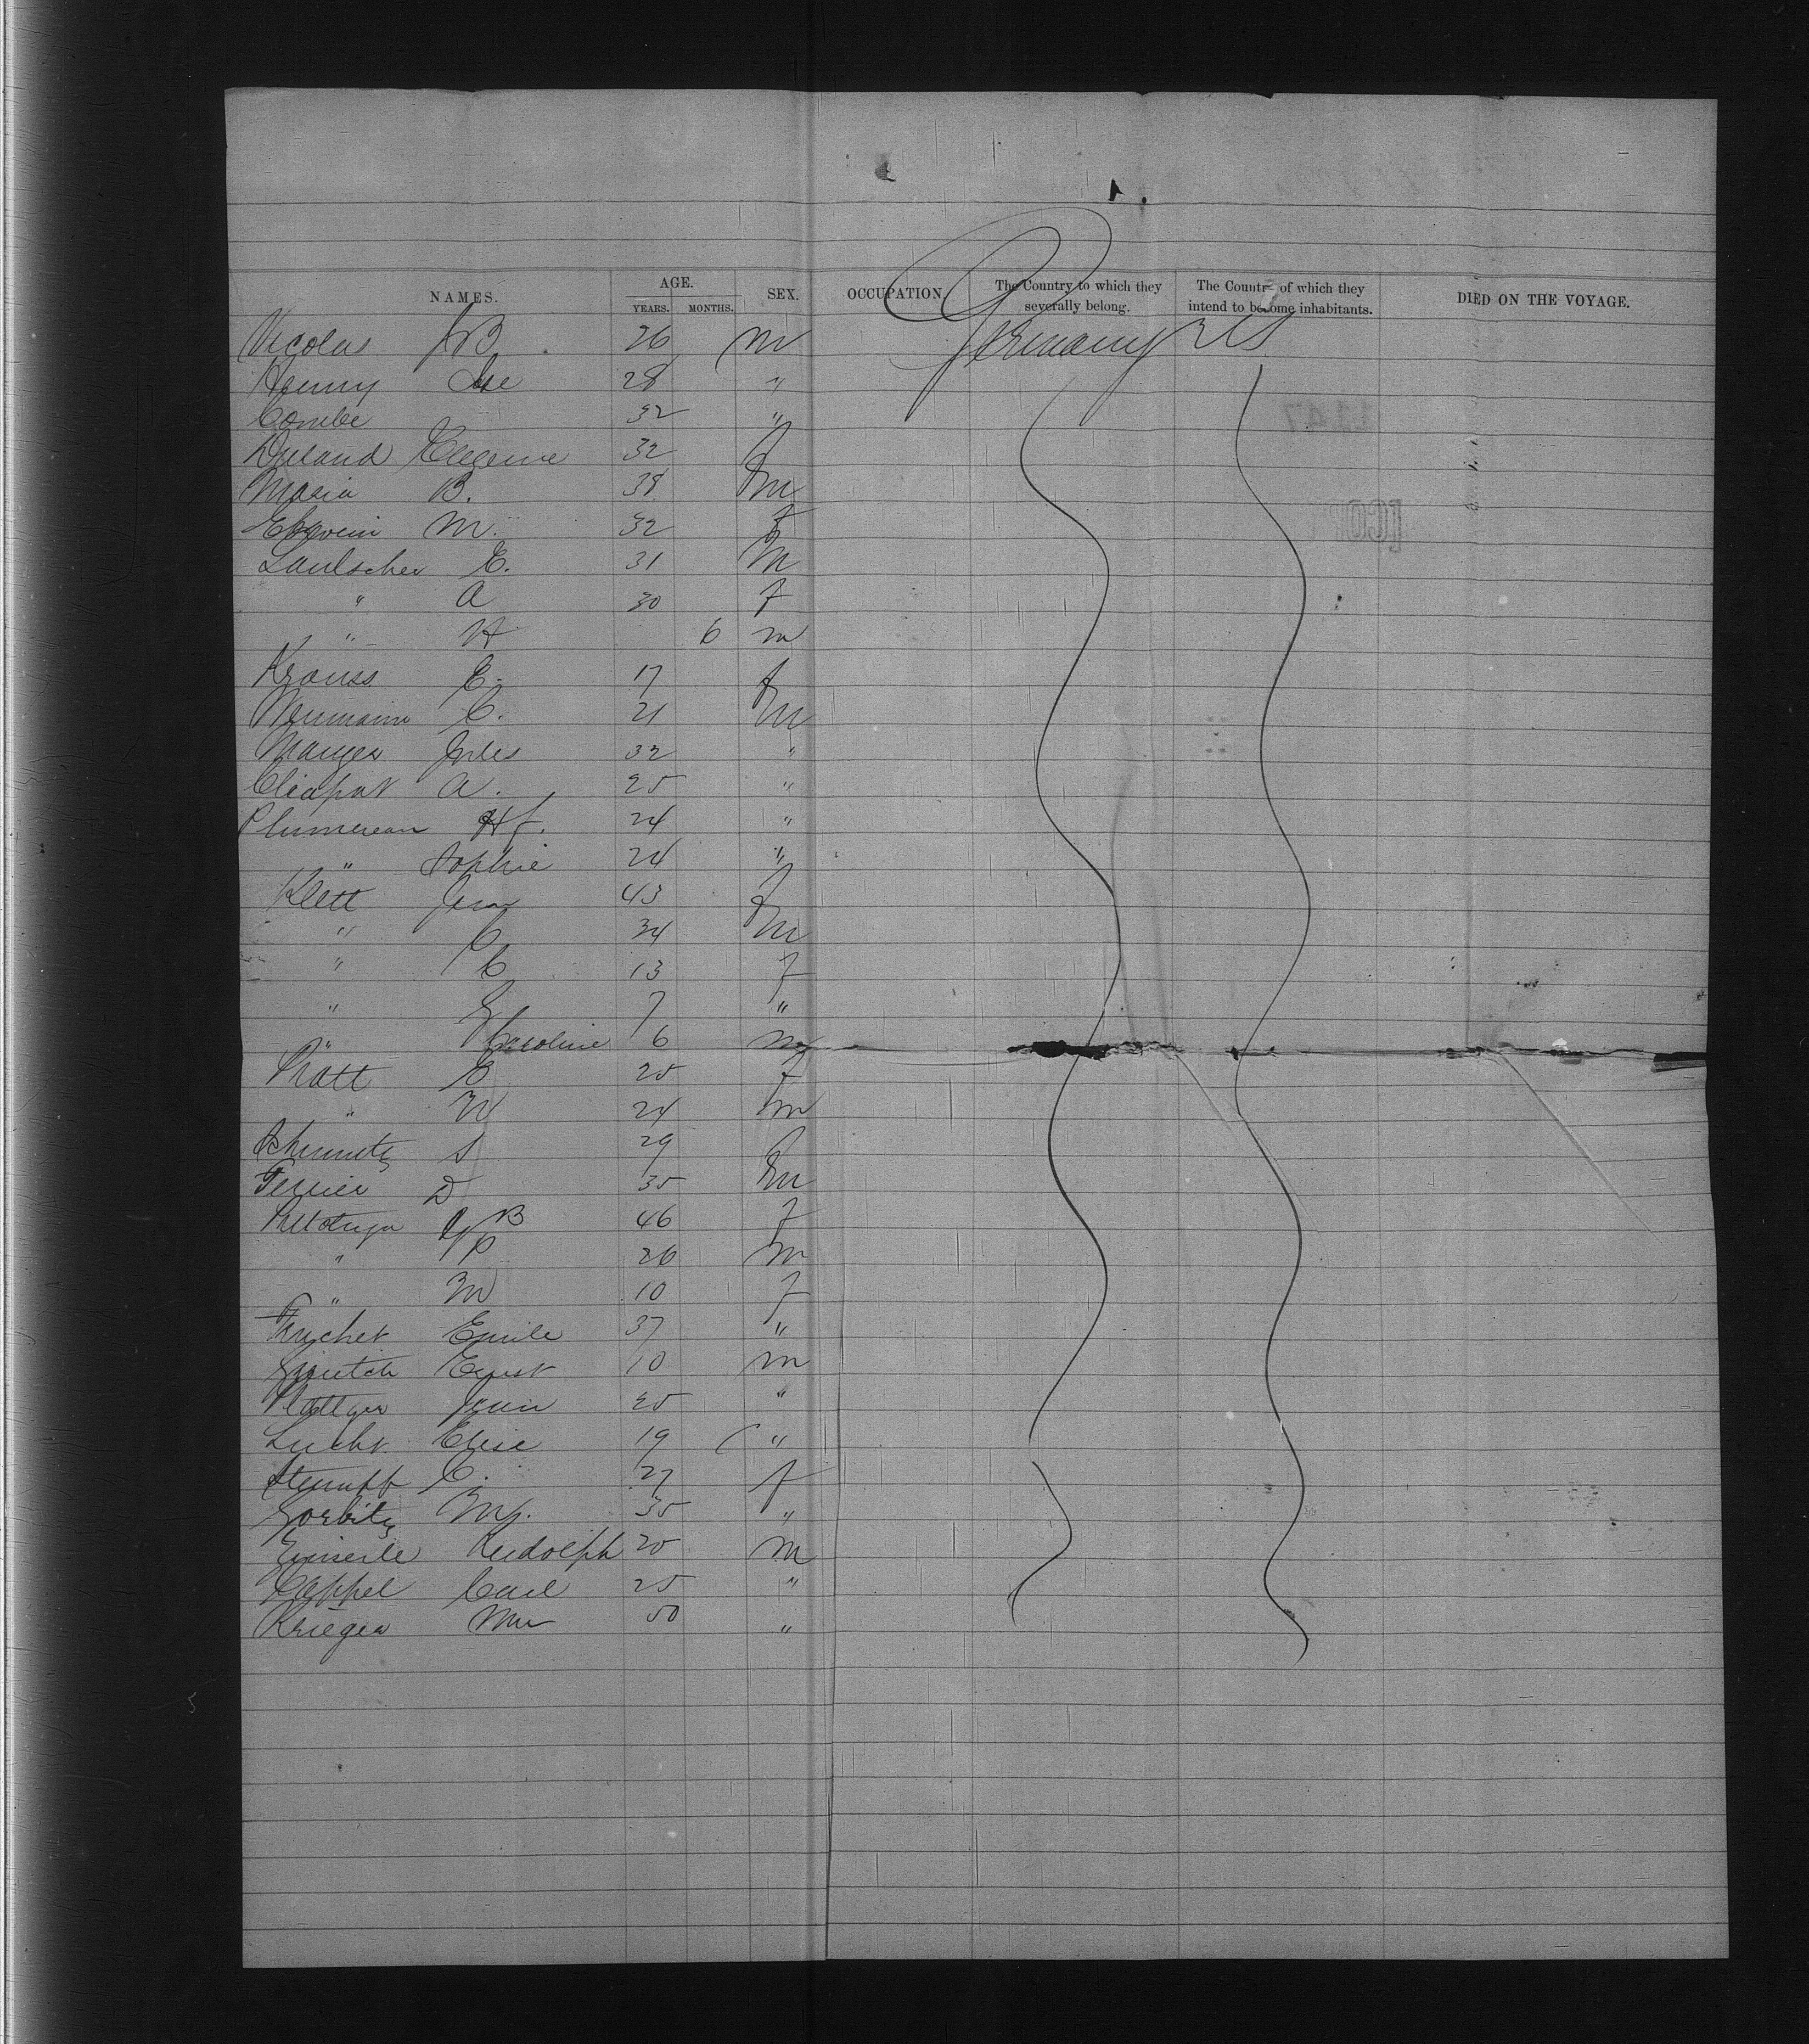 NAMES. AGE. YEARS. MONTHS. SEX. OCCUPATION. The Country to which they severally belong. The Country of which they intend to become inhabitants. DIED ON THE VOYAGE.
Nicolas JB 26 m Germany US
Henny 28 "
Combe 32 "
Duland Eugenie 32 f
Masia B. 38 m
M. 32 f
Laulscher E. 31 m
" A 30 f
" H 6 m
Krauss E. 17 f
Neumann C. 21 m
Manger Jules 32 "
Cliapat A. 25 "
Plumereau H f. 24 "
" Sophie 24 "
Klett Jean 43 f
" C 34 m
" C 13 f
" G 7 "
" Caroline 6 m
Pratt C 25 f
" M 24 m
Schmitz S 29 f
Terrier D 35 m
B 46 f
" P 26 m
" M 10 f
Truchet Emile 37 "
Ernst 10 m
25 "
Lucht Elise 19 "
Stumpf C. 27 f
Gorbitz 35 "
Rudolph 20 m
Keppel Carl 25 "
Krieger Mr 50 "
1147